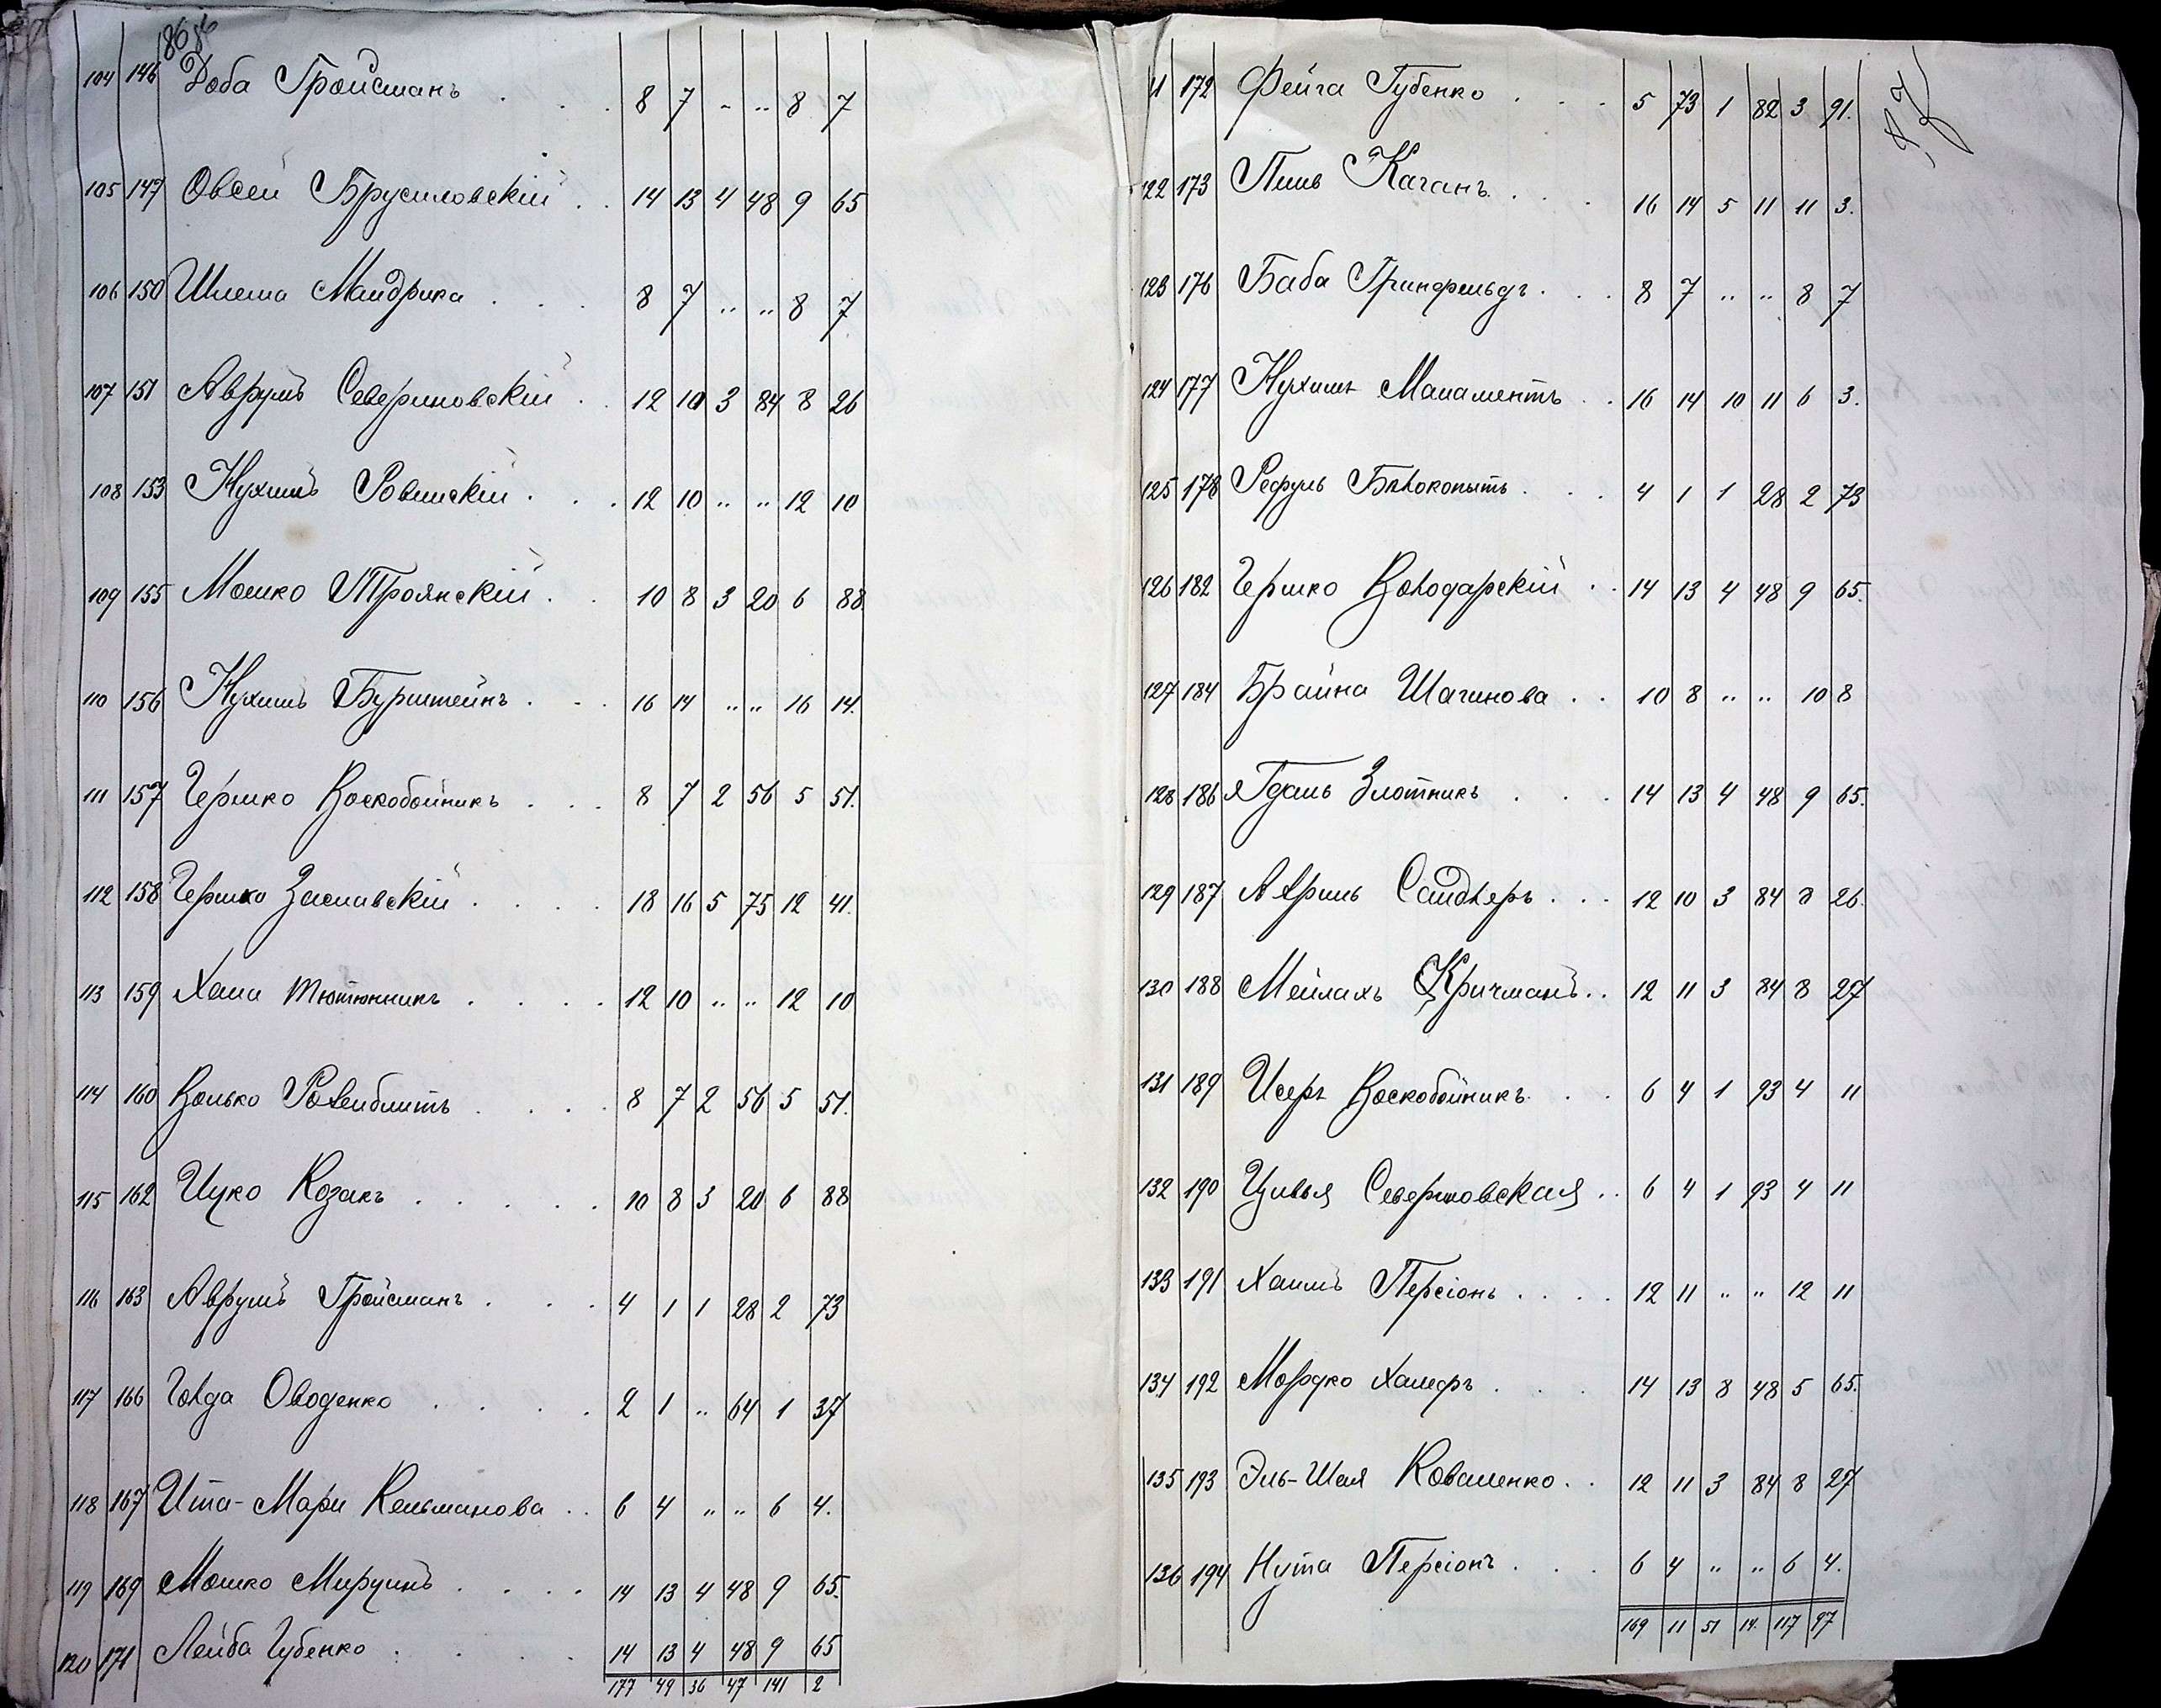 86
104 146 Доба Гройсманъ . . . 8 7 - .. 8 7
105 147 Овсей Брусиловскій . . 14 13 4 48 9 65
106 150 Шлема Майдрика . . . 8 7 .. .. 8 7
107 151 Аврумъ Севериновскій . . 12 10 3 84 8 26
108 153 Нухимъ Ровинскій . . . 12 10 .. .. 12 10
109 155 Мошко Троянскій . . 10 8 3 20 6 88
110 156 Нухимъ Бурштейнъ . . 16 14 .. .. 16 14.
111 157 Гершко Воскобойникъ . . . 8 7 2 56 5 51.
112 158 Гершко Заславскій . . . . 18 16 5 75 12 41.
113 159 Хана Тютюнникъ . . . . 12 10 .. .. 12 10
114 160 Волько Розенблитъ . . . . 8 7 2 56 5 51.
115 162 Ицко Козакъ . . . . . 10 8 3 20 6 88
116 163 Аврумъ Гройсманъ . . . 4 1 1 28 2 73
117 166 Голда Оводенко . . . . 2 1 .. 64 1 37
118 167 Ита-Мари Кельманова . . 6 4 .. .. 6 4.
119 169 Мошко Мируинъ . . . . 14 13 4 48 9 65.
120 171 Лейба Губенко . . . . 14 13 4 48 9 65
177 49 36 47 141 2
172 Фейга Губенко . . . 5 73 1 82 3 91.
122 173 Каганъ . . . 16 14 5 11 11 3.
123 176 Баба Гринфельдъ . . . 8 7 .. .. 8 7
124 177 Нухимъ Маламентъ . . 16 14 10 11 6 3.
125 178 Рефуль Бѣлокопытъ . . . 4 1 1 28 2 73
126 182 Гершко Володарскій . . 14 13 4 48 9 65.
127 184 Брайна Шагинова . . 10 8 .. .. 10 8
128 186 Злотникъ . . . 14 13 4 48 9 65.
129 187 Сандлеръ . . . 12 10 3 84 8 26.
130 188 Мейлахъ Кричманъ . . 12 11 3 84 8 27
131 189 Исеръ Воскобойникъ . . . 6 4 1 93 4 11
132 190 Цивья Севериновская . . 6 4 1 93 4 11
133 191 Хаимъ Персіонъ . . . . 12 11 .. .. 12 11
134 192 Мордко Халифъ . . . 14 13 8 48 5 65.
135 193 Эль-Шая Коваленко . . 12 11 3 84 8 27
136 194 Нута Персіонъ . . . 6 4 .. .. 6 4.
169 11 51 14. 117 97